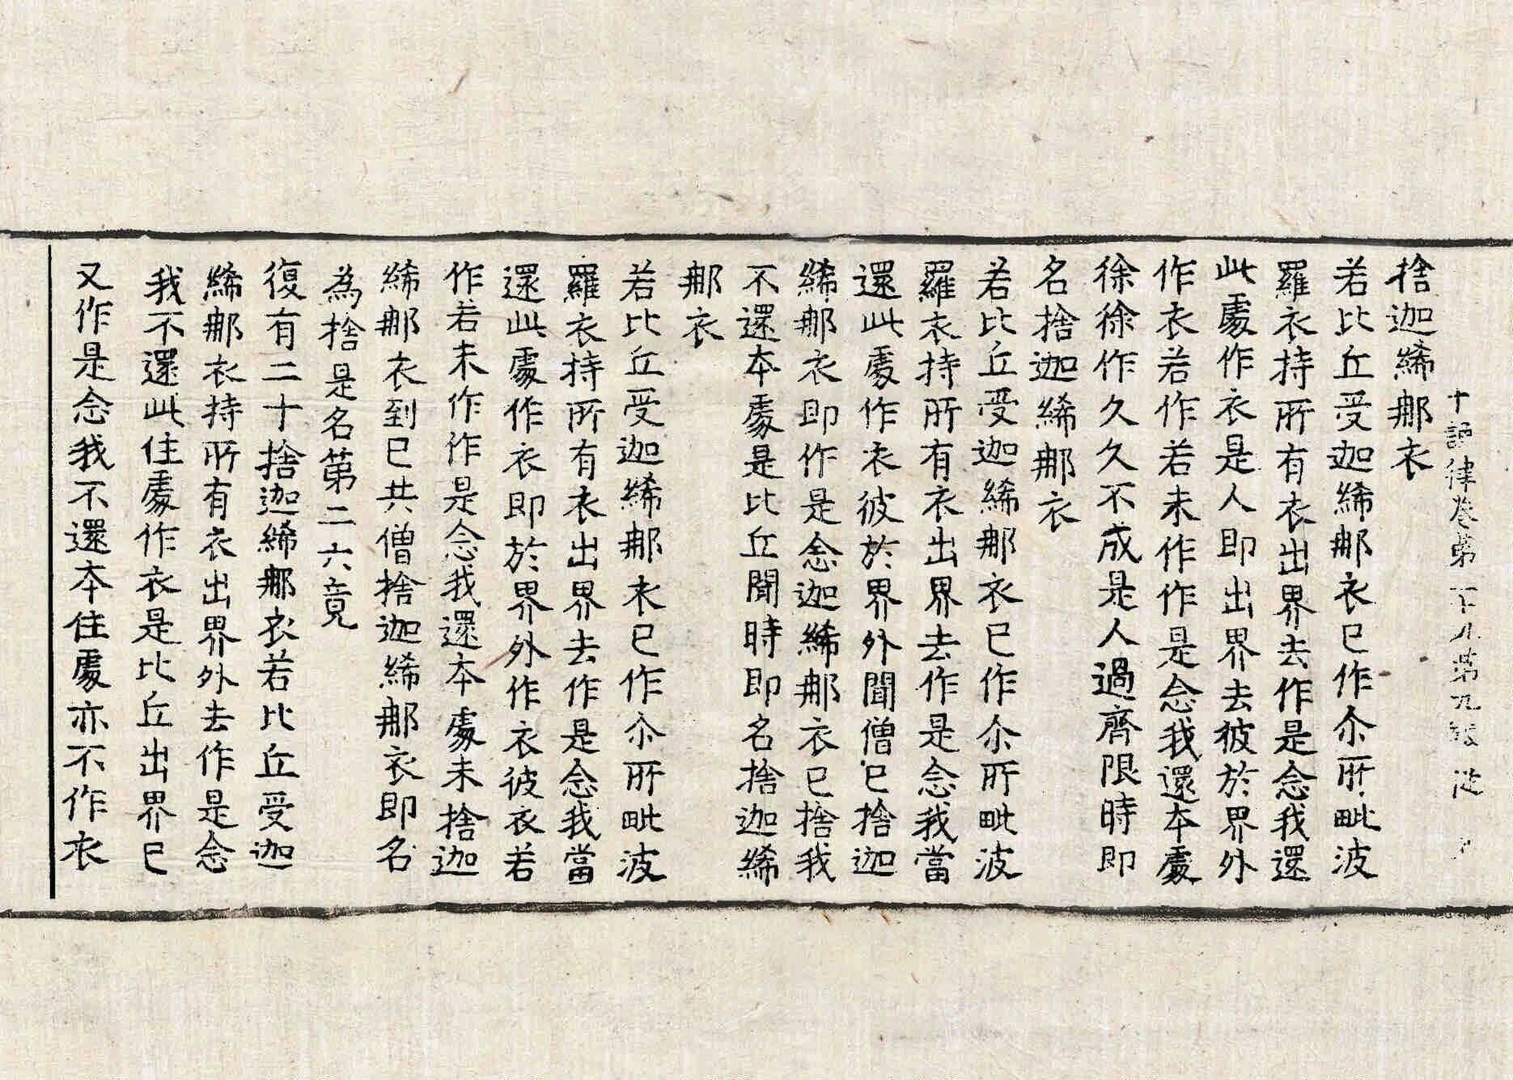 十誦律卷第二十九第九張 從
捨迦絺那衣
若比丘受迦絺那衣已作尒所毗波
羅衣持所有衣出界去作是念我還
此處作衣是人即出界去彼於界外
作衣若作若未作作是念我還本處
徐徐作久久不成是人過齊限時即
名捨迦絺那衣
若比丘受迦絺那衣已作尒所毗波
羅衣持所有衣出界去作是念我當
還此處作衣彼於界外聞僧已捨迦
絺那衣即作是念迦絺那衣已捨我
不還本處是比丘聞時即名捨迦絺
那衣
若比丘受迦絺那衣已作尒所毗波
羅衣持所有衣出界去作是念我當
還此處作衣即於界外作衣彼衣若
作若未作作是念我還本處未捨迦
絺那衣到已共僧捨迦絺那衣即名
為捨是名第二六竟
復有二十捨迦絺那衣若比丘受迦
絺那衣持所有衣出界外去作是念
我不還此住處作衣是比丘出界已
又作是念我不還本住處亦不作衣